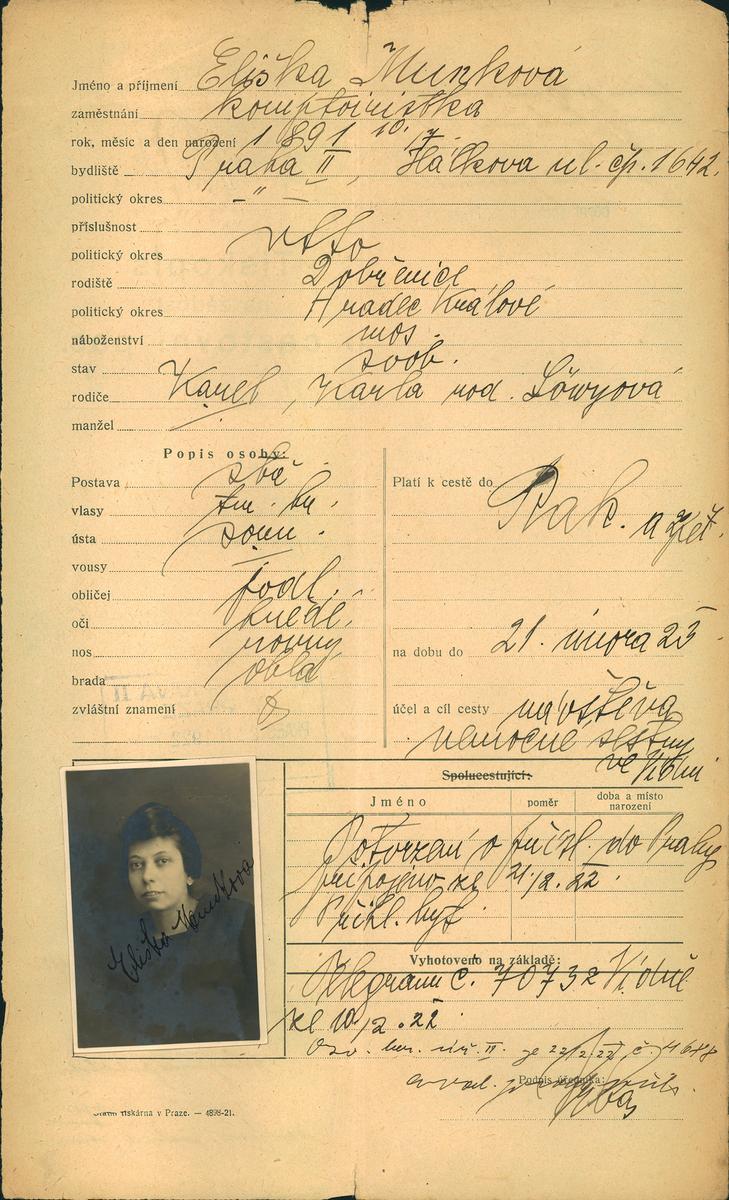 Jméno a příjmení Eliška Munková
zaměstnání komptoiristka
rok, měsíc a den narození 1891 10. 7.
bydliště Praha II, Hálkova ul. čp. 1642.
politický okres —"—
příslušnost
politický okres
rodiště Dobřenice
politický okres Hradec Králové
náboženství mos.
stav svob.
rodiče Karel, Karla rod. Löwyová
manžel
Popis osoby:
Postava
vlasy tm. hn.
ústa soum.
vousy —
obličej podl.
oči hnědé
nos rovný
brada oblá
zvláštní znamení
Platí k cestě do Rak. a zpět.
na dobu do 21. února 23
účel a cíl cesty návštěva
nemocné sestry
ve Vídni
Spolucestující:
Jméno poměr doba a místo narození
Potvrzení o přihl. do Prahy
připojeno ze 21/2. 22.
Přihl. byt.
Vyhotoveno na základě:
Telegram č. 70732 Vídně
ze 10/2. 22
Podpis úředníka:
Eliška Munková
tiskárna v Praze. — 4898-21.